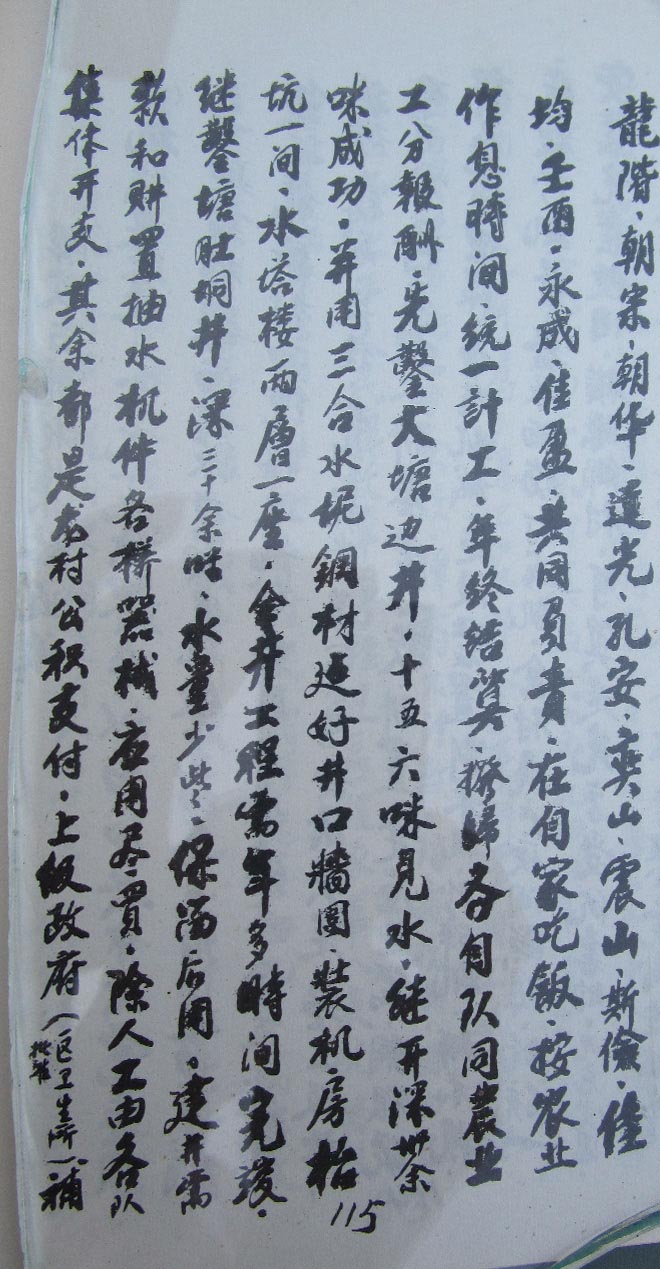 龍階、朝宗、朝华、蓮光、孔安、奕山、震山、斯儉、佳
均、壬酉、永成、佳盈、共同負責、在自家吃飯、按农业
作息時间、統一計工、年終結算、撥歸各自队同農业
工分報酬、先鑿大塘边井、十五六咪見水、継开深卅余
咪成功、并用三合水坭鋼材建好井口牆围、装机房枱
坑一间、水塔楼両層一座、全井工程需年多時间完竣、
継鑿塘肚垌井、深三十余咪、水量少些、保留后用、建井需
款和購置抽水机件各样器械、应用尽買、除人工由各队
集体开支、其余都是本村公积支付、上级政府（区卫生所）補
115